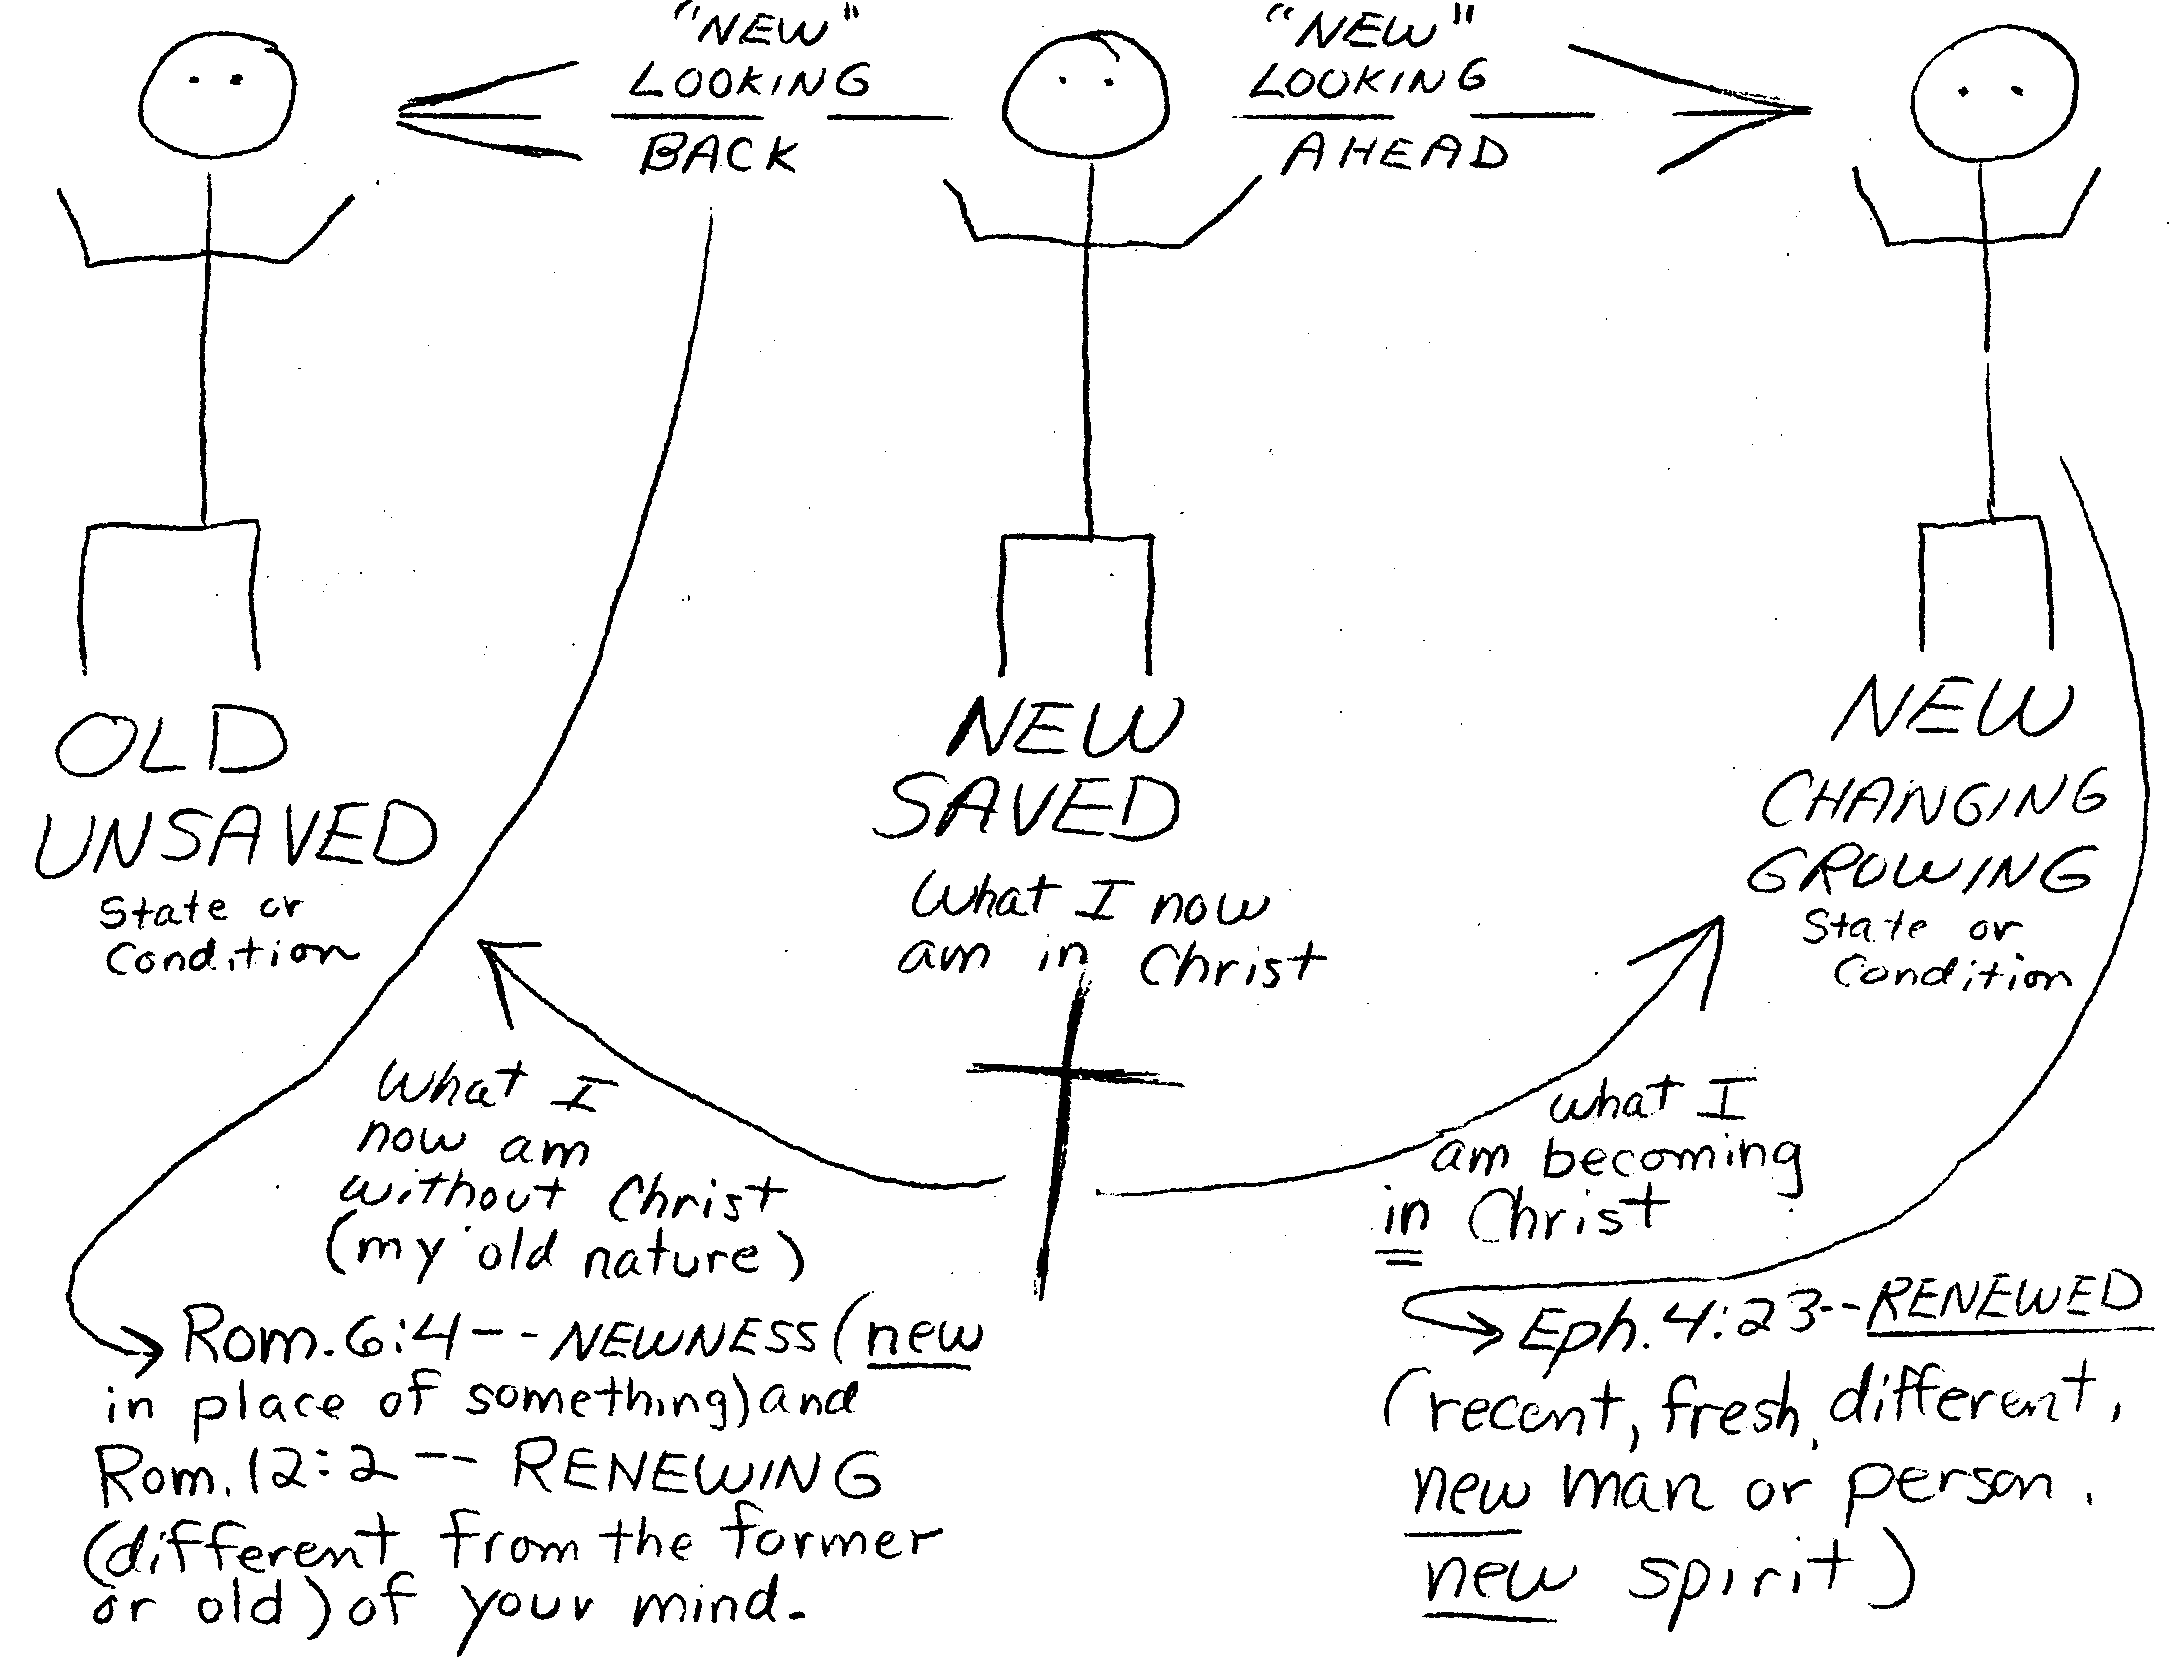 "NEW"
LOOKING
BACK
"NEW"
LOOKING
AHEAD
OLD
UNSAVED
State or
Condition
NEW
SAVED
What I now
am in Christ
NEW
CHANGING
GROWING
State or
Condition
What I
now am
without Christ
(my old nature)
what I
am becoming
in Christ
Rom. 6:4 -- NEWNESS (new
in place of something) and
Rom. 12:2 -- RENEWING
(different from the former
or old) of your mind.
Eph. 4:23 -- RENEWED
(recent, fresh, different,
new man or person.
new spirit)